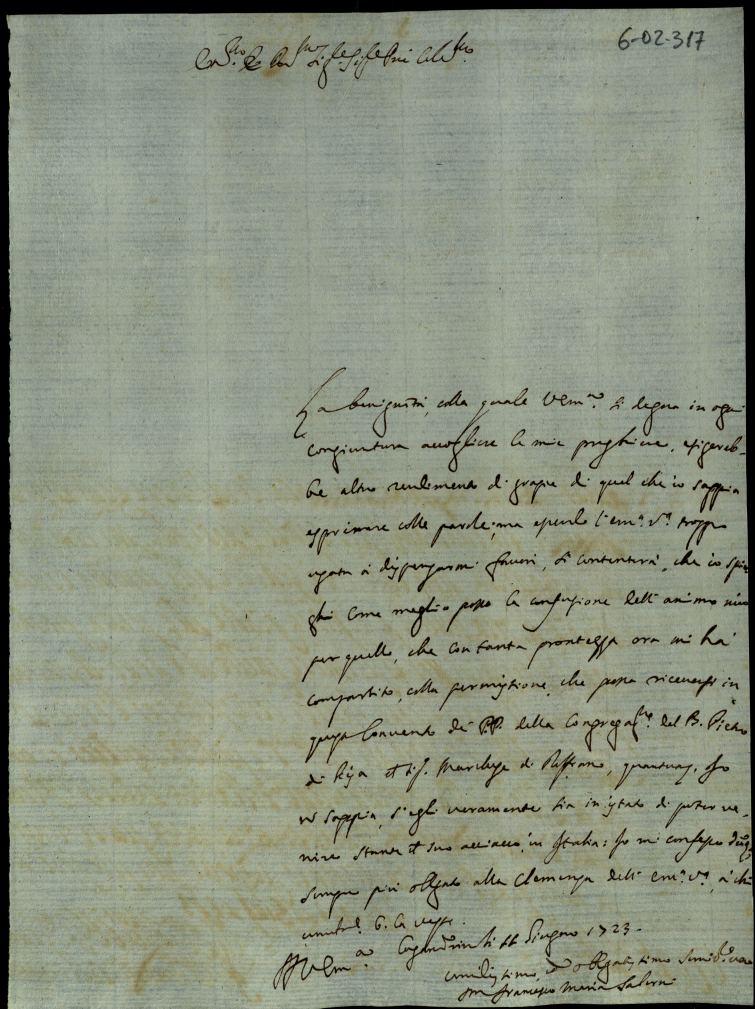 6-02-317
La benignità, colla quale V Em.ª si degna in ogni
congiuntura accogliere le mie preghiere, esigereb-
be altro rendimento di grazie di quel che io sappia
esprimere colle parole; ma essendo l'Em.ª V.ª troppo
usata à dispensarmi favori, si contenterà, che io spie-
ghi come meglio posso la confusione dell'animo mio
per quello, che con tanta prontezza ora mi hà
compartito, colla permissione, che possa riceversi in
questo Convento de' P.P. della Congregaz.ne del B. Pietro
di Pisa il Sig.r Marchese di, quantunq.
io sappia, s'egli veramente sia in istato di poter ve-
nire stante il suo acciacco, in Italia: Io mi confesso
sempre più obligato alla Clemenza dell'Em.ª V.ª, à cui
b. la veste.
V Em.ª li Giugno 1723.
umilissimo, ed obligatissimo
Francesco Maria Salerni